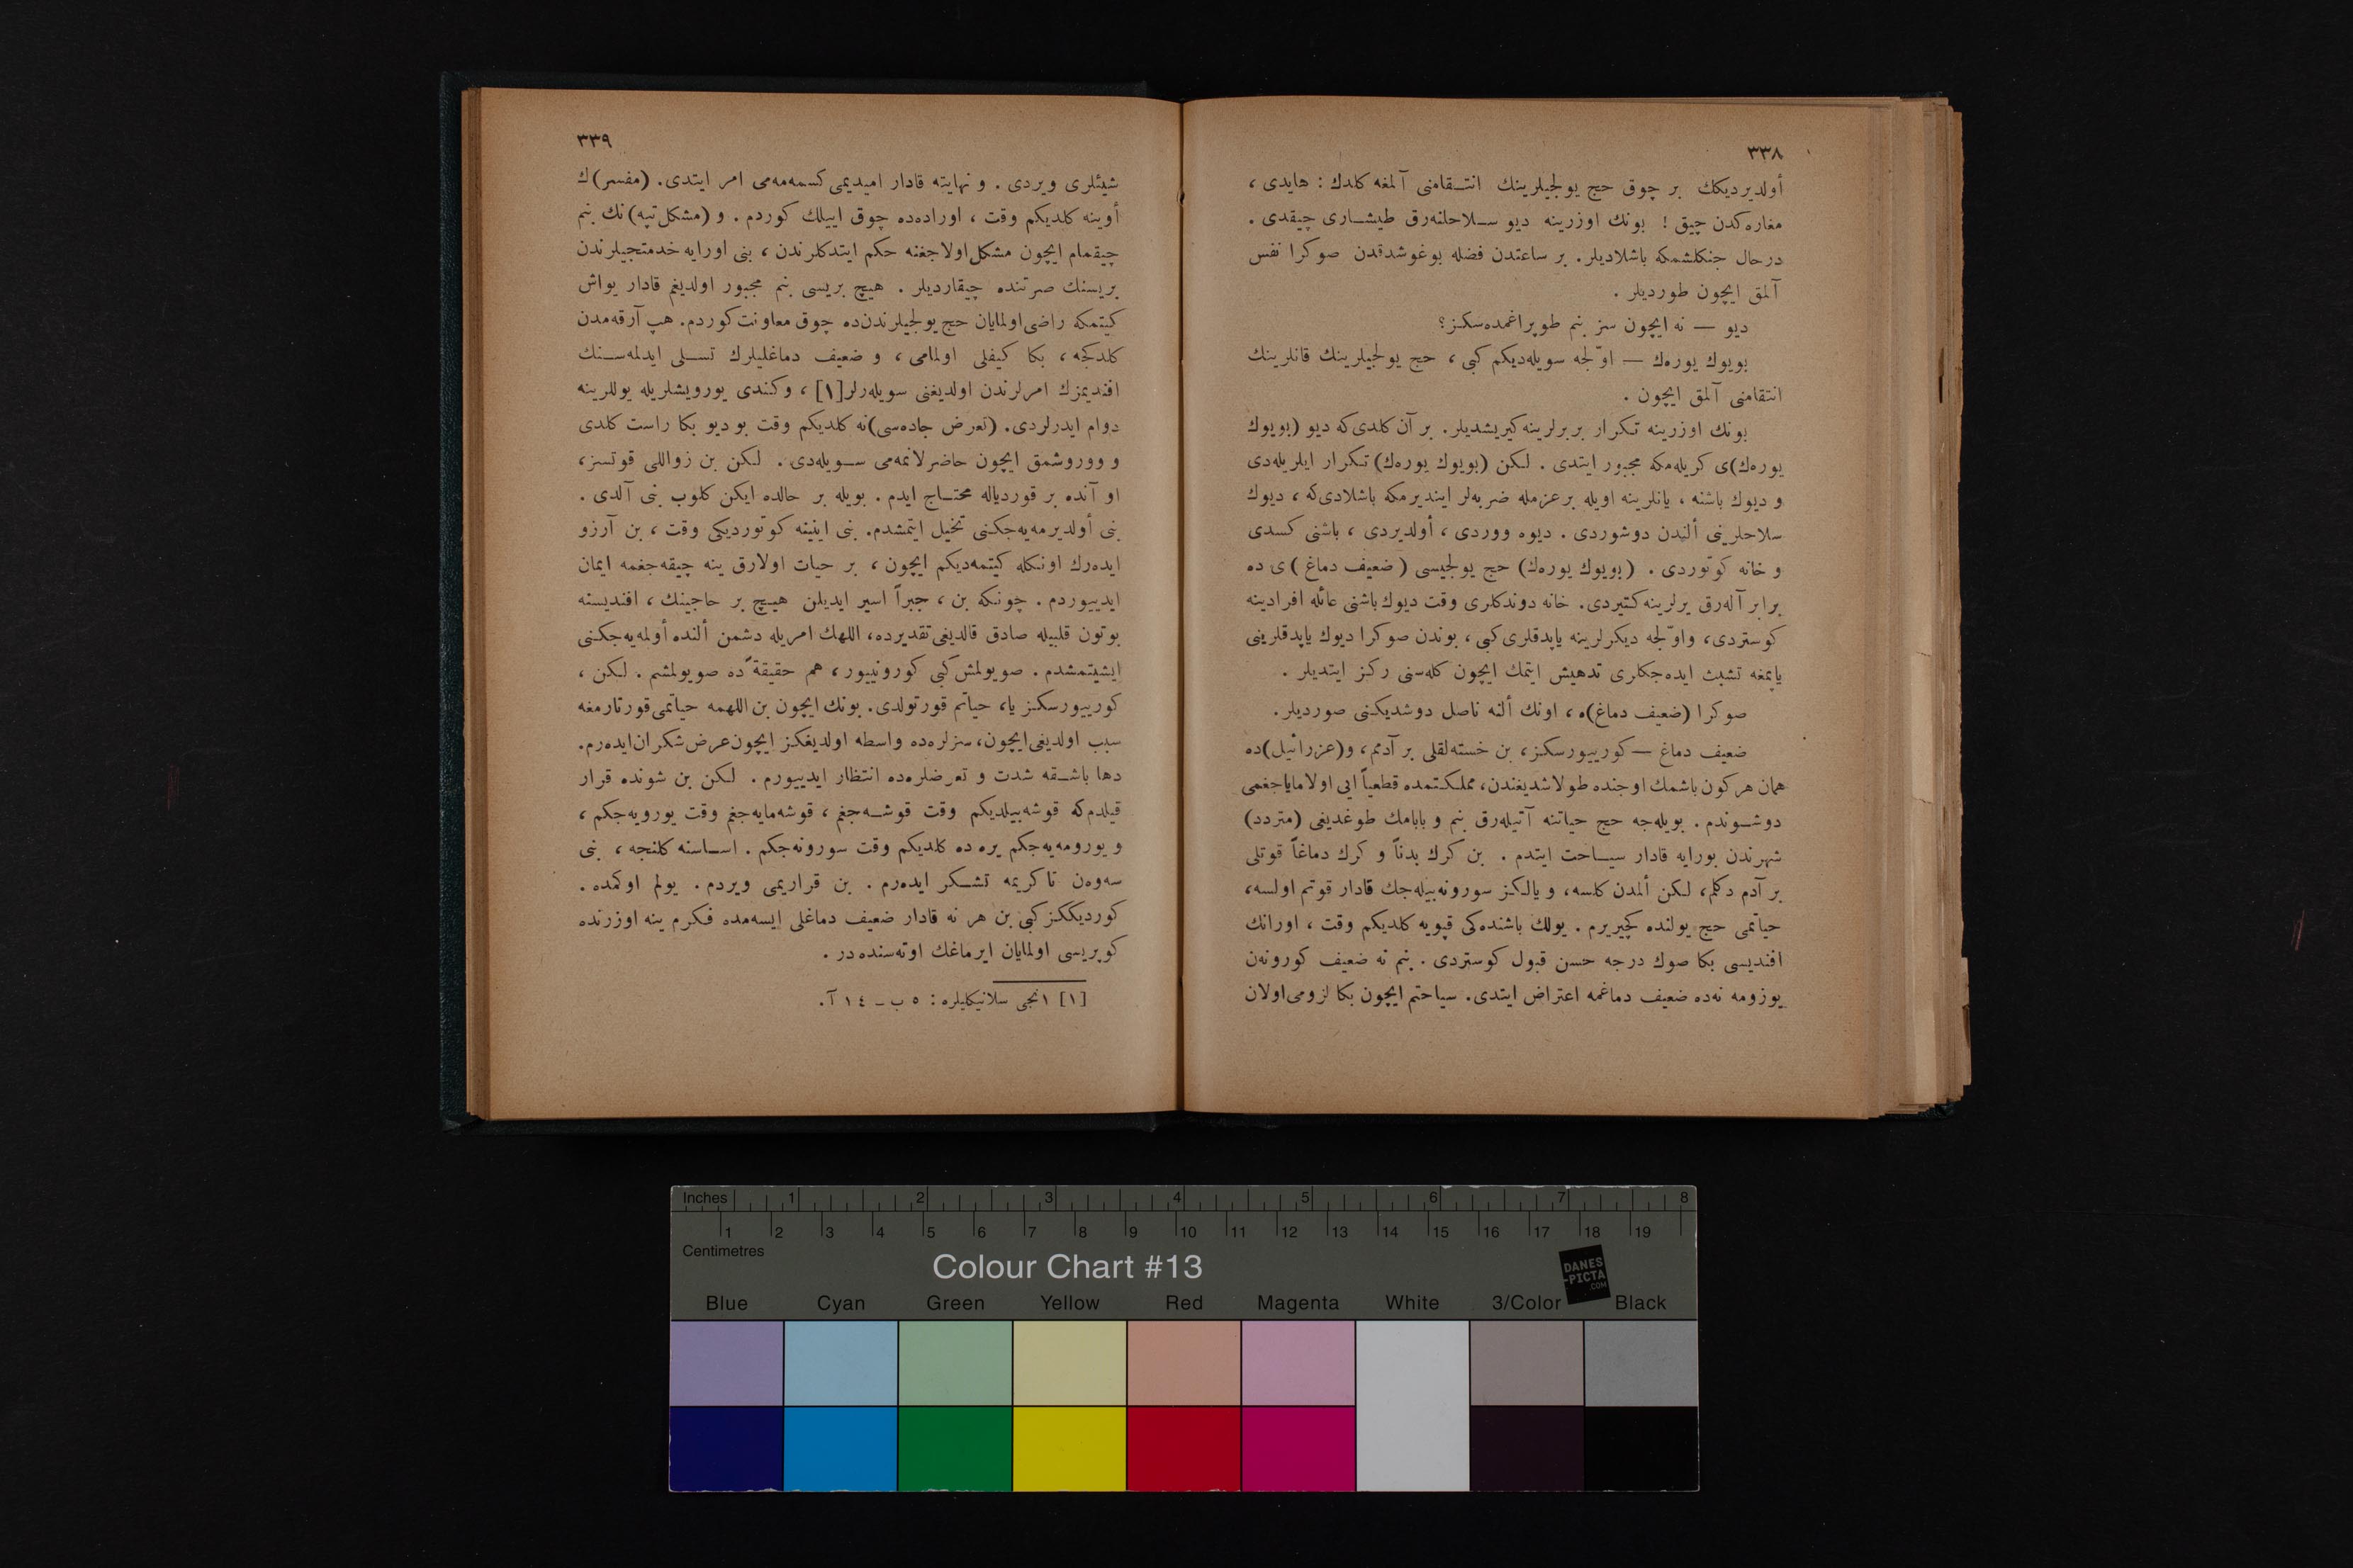 ٣٣٨
أولديرديكك بر چوق حج يولجيلرينك انتـقامنى آلمغه كلدك : هايدى ،
مغاره كدن چيق ! بونك اوزرينه ديو سـلاحلنه‌رق طيشـارى چيقدى .
درحال جنكلشمكه باشلاديلر . بر ساعتدن فضله بوغوشدقدن صوكرا نفس
آلمق ايچون طورديلر .
ديو — نه ايچون سز بنم طوپراغمده‌سكز؟
بويوك يوره‌ك — اوّلجه سويله‌ديكم كبى ، حج يولجيلرينك قانلرينك
انتقامنى آلمق ايچون .
بونك اوزرينه تكرار بربرلرينه كيريشديلر. بر آن كلدى كه ديو (بويوك
يوره‌ك)ى كريله‌مكه مجبور ايتدى . لكن (بويوك يوره‌ك) تكرار ايلريله‌دى
و ديوك باشنه ، يانلرينه اويله بر عزمله ضربه‌لر اينديرمكه باشلادى كه ، ديوك
سلاحلرينى ألندن دوشوردى . ديوه ووردى ، أولديردى ، باشنى كسدى
و خانه كوتوردى . (بويوك يوره‌ك) حج يولجيسى (ضعيف دماغ)ى ده
برابر آله‌رق يرلرينه كتيردى. خانه دوندكلرى وقت ديوك باشنى عائله افرادينه
كوستردى، واوّلجه ديكرلرينه ياپدقلرى كبى ، بوندن صوكرا ديوك ياپدقلرينى
ياپمغه تشبث ايده‌جكلرى تدهيش ايتمك ايچون كله‌سنى ركز ايتديلر .
صوكرا (ضعيف دماغ)ه ، اونك ألنه ناصل دوشديكنى صورديلر.
ضعيف دماغ — كورييورسكز، بن خسته‌لقلى بر آدمم، و(عزرائيل)ده
همان هر كون باشمك اوجنده طولاشديغندن، مملكتمده قطعياً ايى اولاماياجغمى
دوشـوندم . بويله‌جه حج حياتنه آتيله‌رق بنم و بابامك طوغديغى (متردد)
شهرندن بورايه قادار سيـاحت ايتدم . بن كرك بدناً و كرك دماغاً قوتلى
بر آدم دكلم، لكن ألمدن كلسه، و يالكز سورونه‌بيله‌جك قادار قوتم اولسه،
حياتمى حج يولنده كچيريرم . يولك باشنده‌كى قپويه كلديكم وقت ، اورانك
افنديسى بكا صوك درجه حسن قبول كوستردى . بنم نه ضعيف كورونه‌ن
يوزومه نه‌ده ضعيف دماغمه اعتراض ايتدى. سياحتم ايچون بكا لزومى اولان
٣٣٩
شيئلرى ويردى . و نهايته قادار اميديمى كسمه‌مه‌مى امر ايتدى. (مفسر)ك
أوينه كلديكم وقت ، اوراده‌ده چوق اييلك كوردم . و (مشكل تپه)نك بنم
چيقمام ايچون مشكل اولاجغنه حكم ايتدكلرندن ، بنى اورايه خدمتجيلرندن
بريسنك صرتنده چيقارديلر . هيچ بريسى بنم مجبور اولديغم قادار يواش
كيتمكه راضى اولمايان حج يولجيلرندن‌ده چوق معاونت كوردم. هپ آرقه‌مدن
كلدكجه ، بكا كيفلى اولمامى ، و ضعيف دماغليلرك تسـلى ايدلمه‌سـنك
افنديمزك امرلرندن اولديغنى سويله‌رلر[١] ، وكندى يورويشلريله يوللرينه
دوام ايدرلردى. (تعرض جاده‌سى)نه كلديكم وقت بو ديو بكا راست كلدى
و ووروشمق ايچون حاضرلانمه‌مى سـويله‌دى . لكن بن زواللى قوتسز،
او آنده بر قوردياله محتـاج ايدم . بويله بر حالده ايكن كلوب بنى آلدى .
بنى أولديرمه‌يه‌جكنى تخيل ايتمشدم. بنى اينيـنه كوتورديكى وقت ، بن آرزو
ايده‌رك اونكله كيتمه‌ديكم ايچون ، بر حيات اولارق ينه چيقه‌جغمه ايمان
ايدييوردم . چونكه بن ، جبراً اسير ايديلن هيـچ بر حاجينك ، افنديسنه
بوتون قلبيله صادق قالديغى تقديرده، اللهك امريله دشمن ألنده أولمه‌يه‌جكنى
ايشيتمشدم . صويولمش كبى كورونييور، هم حقيقةً ده صويولمشم . لكن ،
كورييورسكز يا، حياتم قورتولدى. بونك ايچون بن اللهمه حياتمى قورتارمغه
سبب اولديغى ايچون، سزلره‌ده واسطه اولديغكز ايچون عرض شكران ايده‌رم.
دها باشـقه شدت و تعرضلره‌ده انتظار ايدييورم . لكن بن شونده قرار
قيلدم كه قوشه‌بيلديكم وقت قوشـه‌جغم ، قوشه‌مايه‌جغم وقت يورويه‌جكم ،
و يورومه‌يه‌جكم يره ده كلديكم وقت سورونه‌جكم . اسـاسنه كلنجه ، بنى
سه‌وه‌ن تا كريمه تشـكر ايده‌رم . بن قراريمى ويردم . يولم اوكمده .
كورديككز كبى بن هر نه قادار ضعيف دماغلى ايسه‌مده فكرم ينه اوزرنده
كوپريسى اولمايان ايرماغك اوته‌سنده در .
[١] ١نجى سلانيكليلره : ٥ ب ـ ١٤ آ.
Inches 1 2 3 4 5 6 7 8
1 2 3 4 5 6 7 8 9 10 11 12 13 14 15 16 17 18 19
Centimetres
Colour Chart #13
DANES
-PICTA
.COM
Blue Cyan Green Yellow Red Magenta White 3/Color Black